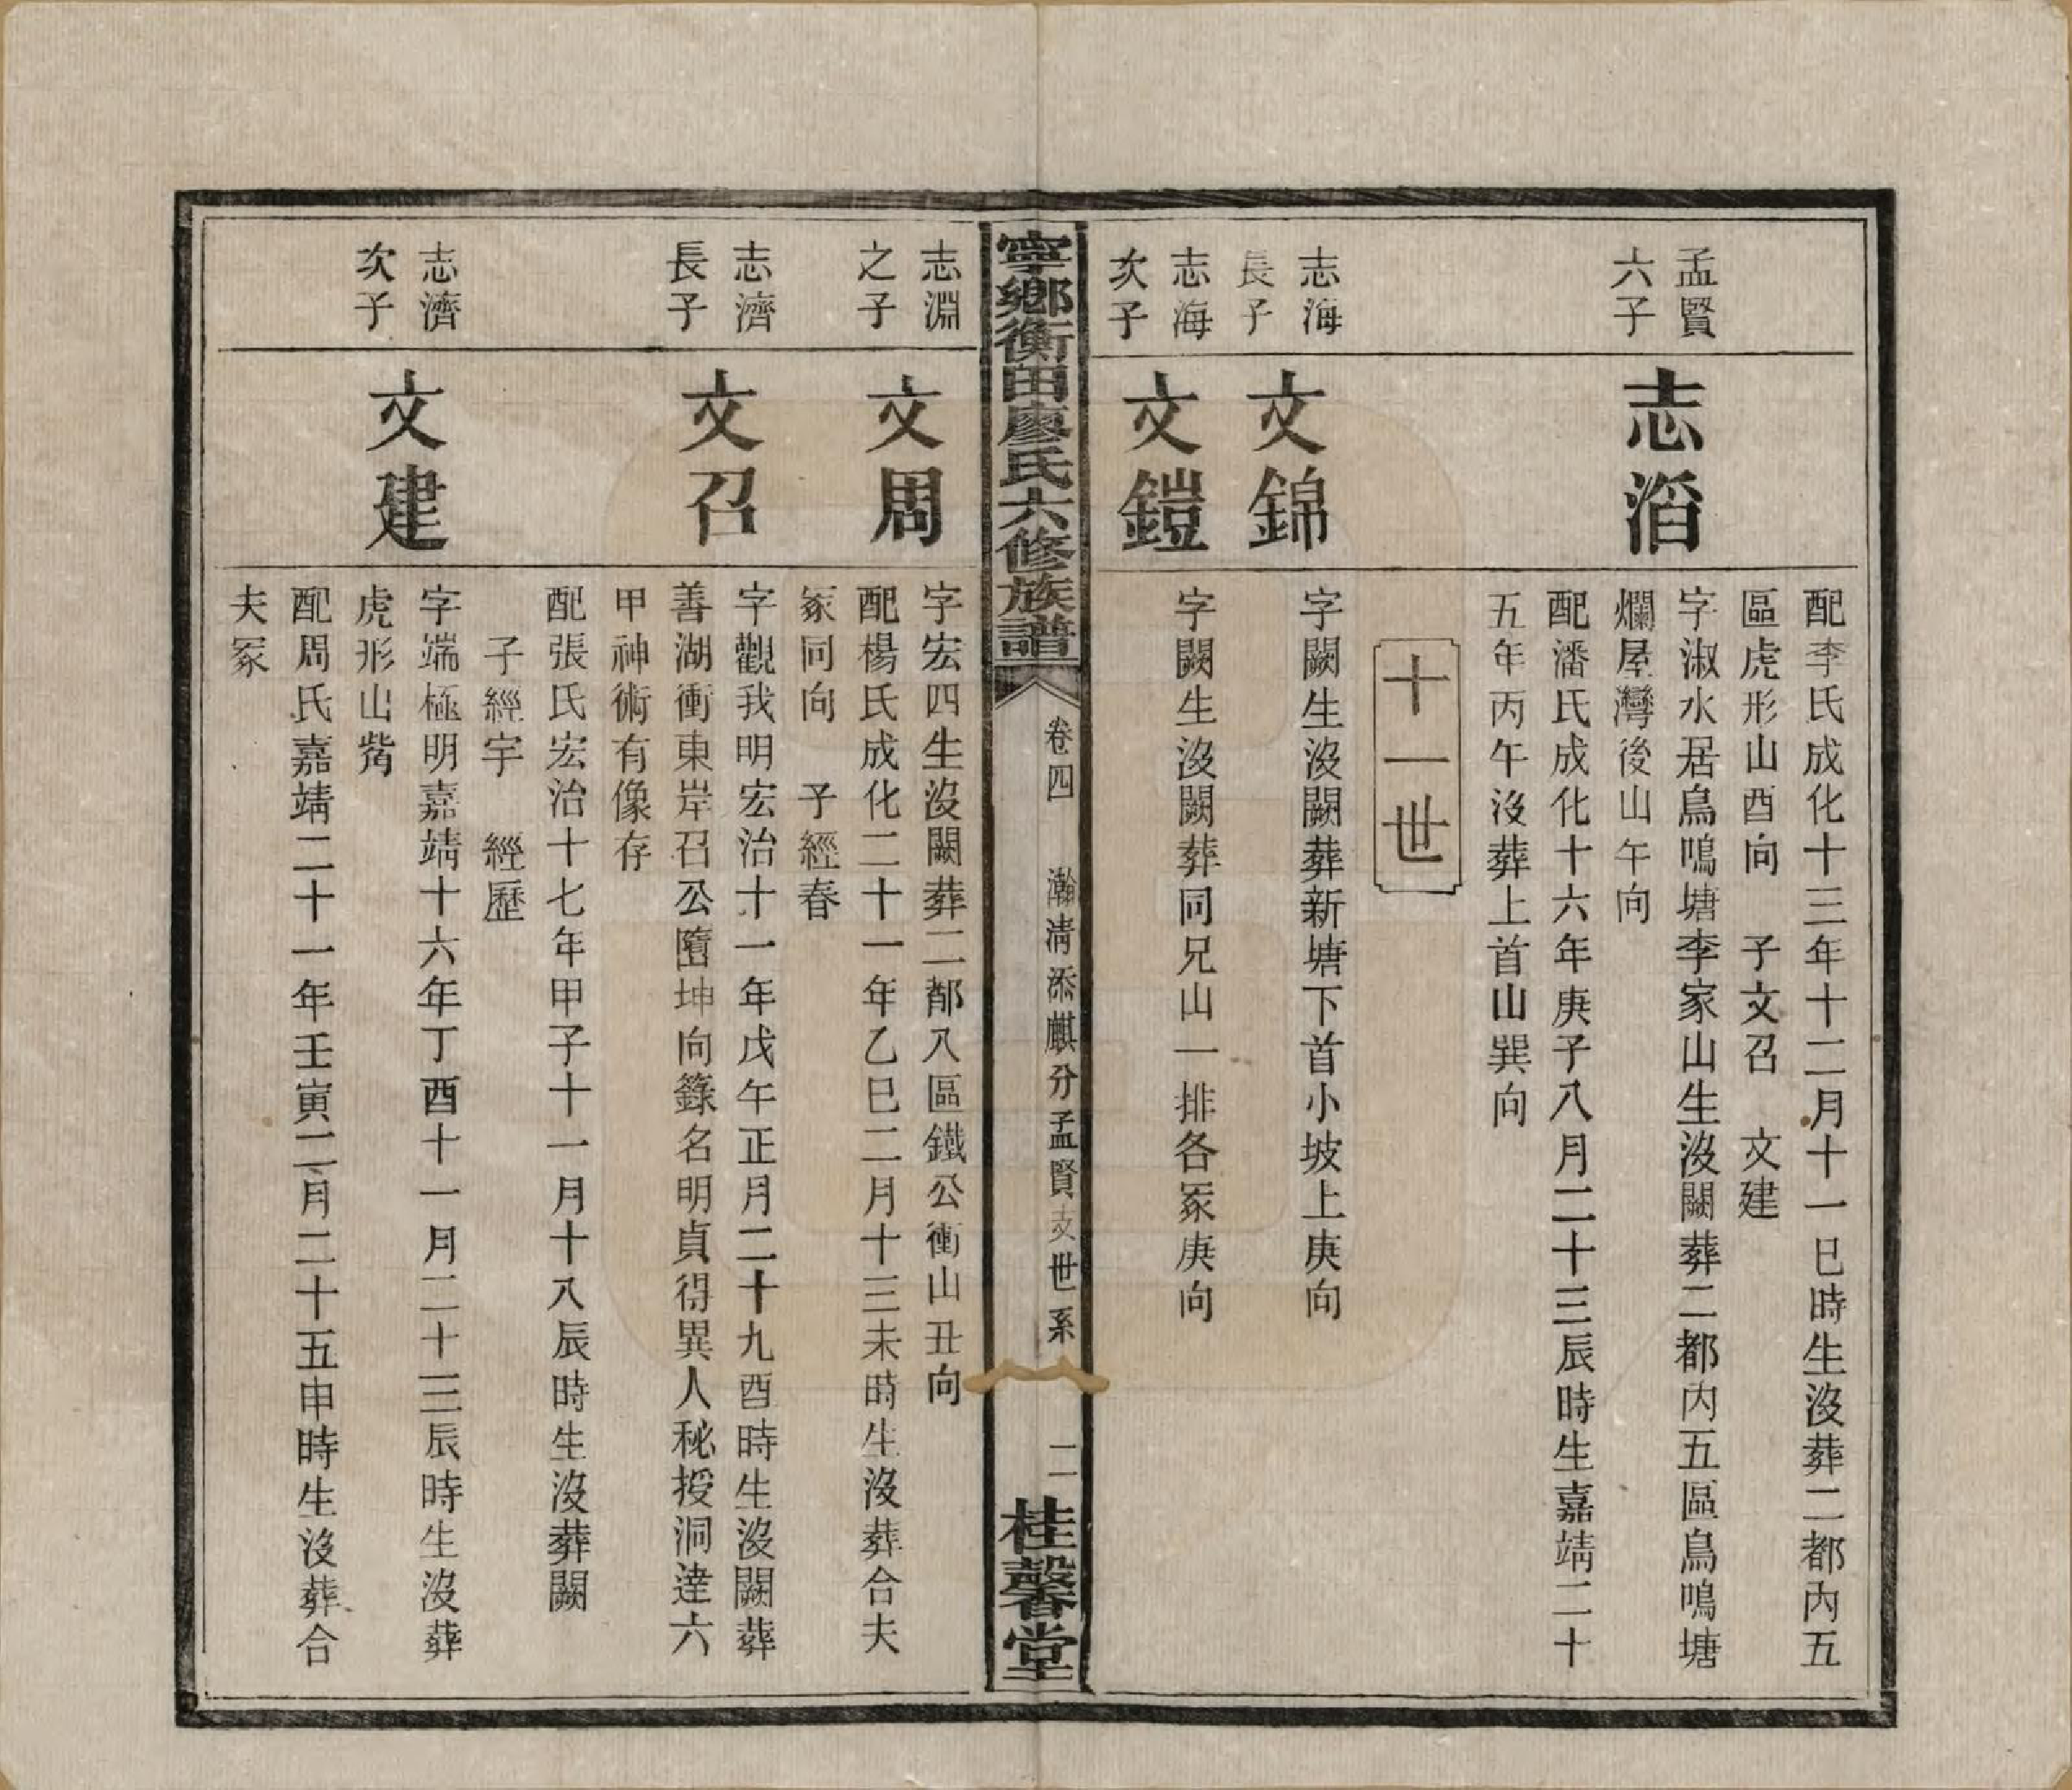 配李氏成化十三年十二月十一巳時生沒葬二都內五
區虎形山酉向　子文召　文建
孟賢
六子
志滔
字淑水居鳥鳴塘李家山生沒闕葬二都內五區鳥鳴塘
爛屋灣後山午向
配潘氏成化十六年庚子八月二十三辰時生嘉靖二十
五年丙午沒葬上首山巽向
十一世
志海
長子
文錦
字闕生沒闕葬新塘下首小坡上庚向
志海
次子
文鎧
字闕生沒闕葬同兄山一排各冢庚向
寧鄉衡田廖氏六修族譜
卷四　瀚清添麒分孟賢支世系
二
桂馨堂
志淵
之子
文周
字宏四生沒闕葬二都八區鐵公衝山丑向
配楊氏成化二十一年乙巳二月十三未時生沒葬合夫
冢同向　子經春
志濟
長子
文召
字觀我明宏治十一年戊午正月二十九酉時生沒闕葬
善湖衝東岸召公墮坤向籙名明貞得異人秘授洞達六
甲神術有像存
配張氏宏治十七年甲子十一月十八辰時生沒葬闕
子經宇　經歷
志濟
次子
文建
字端極明嘉靖十六年丁酉十一月二十三辰時生沒葬
虎形山觜
配周氏嘉靖二十一年壬寅二月二十五申時生沒葬合
夫冢